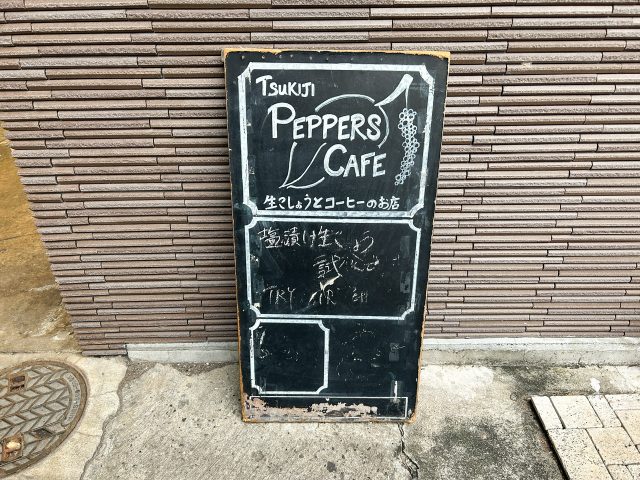 TSUKIJI
PEPPERS
CAFE
生こしょうとコーヒーのお店
塩漬け生こしょう
試
TRY